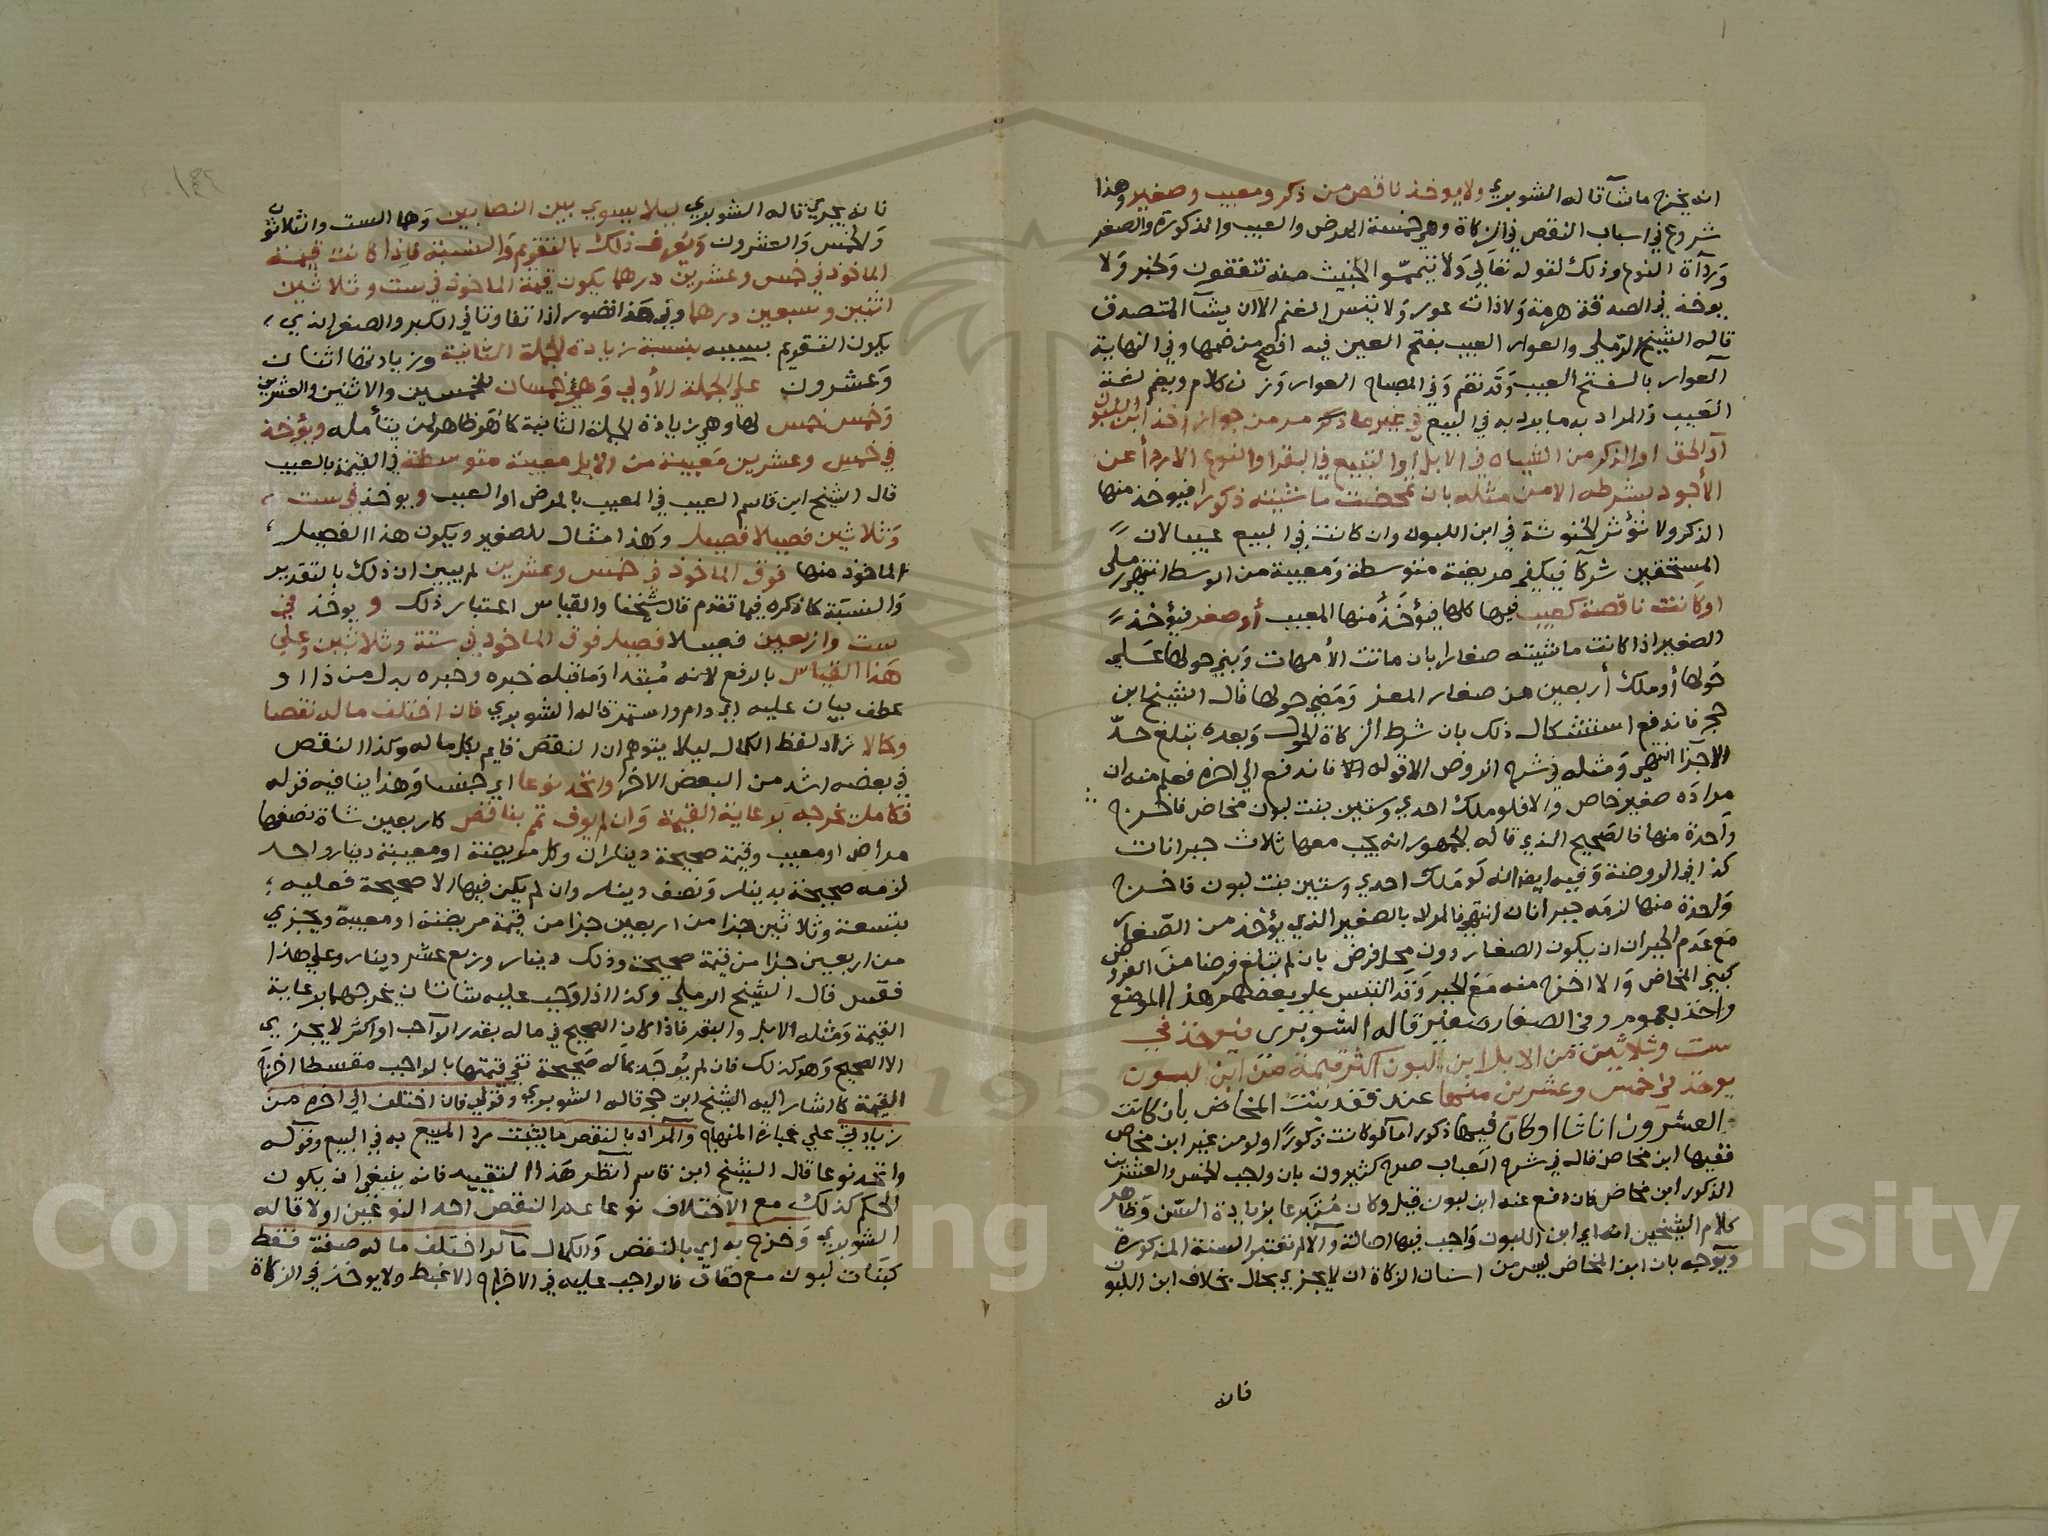 انه يخرج ما شآ قاله الشوبري ولا يوخذ ناقص من ذكر ومعيب وصغير وهذا
شروع في اسباب النقص في الزكاة وهي خمسة المرض والعيب والذكورة والصغر
وردآة النوع وذلك لقوله تعالي ولا تيمموا الخبيث منه تنفقون ولخبر ولا
يوخذ في الصدقة هرمة ولا ذات عوار ولا تيس الغنم الا ان يشآ المتصدق
قاله الشيخ الرملي والعوار العيب بفتح العين فيه افصح من ضمها وفي النهاية
العوار بالفتح العيب وقد تضم وفي المصباح العوار وزن كلام وبضم لغة
العيب والمراد به ما يرد به في البيع في غير ما ذكر مر من جواز اخذ ابن اللبون
او الحق او الذكر من الشياه في الابل او التبيع في البقر او النوع الاردأ عن
الأجود بشرطه الا من مثله بان تمحضت ماشيته ذكورا فيوخذ منها
الذكر ولا تؤثر الخنوثة في ابن اللبون وان كانت في البيع عيبا لان
المستحقين شركآ فيكفي مريضة متوسطة ومعيبة من الوسط انتهى رملي
او كانت ناقصة كعيب فيها كلها فيؤخذ منها المعيب أو صغر فيؤخذ
الصغير اذا كانت ماشيته صغارا بان ماتت الأمهات وبني حولها على
حولها أو ملك أربعين من صغار المعز ومضي حولها قال الشيخ ابن
حجر فاندفع استشكال ذلك بان شرط الزكاة الحول وبعده تبلغ حد
الاجزا انتهى ومثله في شرح الروض الا قوله فاندفع الي اخره فعلم منه ان
مراده صغير خاص والا فلو ملك احدي وستين بنت لبون مخاض فاخرج
واحدة منها فالصحيح الذي قاله الجمهور انه يجب معها ثلاث جبرانات
كذا في الروضة وفيه ايضا انه لو ملك احدي وستين بنت لبون فاخرج
واحدة منها لزمه جبرانان انتهى فالمراد بالصغير الذي يؤخذ من الصغار
مع عدم الجبران ان يكون الصغار دون محل فرض بان لم تبلغ فرضا من الفروض
كبني المخاض والا اخرج منه مع الجبر وقد التبس علي بعضهم هذا الموضع
واخذ بعموم وفي الصغار صغير قاله الشوبري فيوخذ في
ست وثلاثين من الابل ابن لبون اكثر قيمة من ابن لبون
يوخذ في خمس وعشرين منها عند فقد بنت المخاض بان كانت
العشرون اناثا او كان فيها ذكور اما لو كانت ذكورا ولو من غير ابن مخاض
ففيها ابن مخاض قاله في شرح العباب صرح كثيرون بان واجب الخمس والعشرين
الذكور ابن مخاض فان دفع عنه ابن لبون قبل وكان متبرعا بزيادة السن وظاهر
كلام الشيخين انه اي ابن اللبون واجب فيها اصالة والا لم تعتبر السنة المذكورة
ويوجه بان ابن المخاض ليس من اسنان الزكاة ان لا يجزي بحال بخلاف ابن اللبون
فان
فانه يجزي قاله الشوبري ليلا يسوي بين النصابين وهما الست والثلاثون
والخمس والعشرون ويعرف ذلك بالتقويم والنسبة فاذا كانت قيمة
الماخوذ في خمس وعشرين درهما يكون قيمة الماخوذ في ست وثلاثين
اثنين وسبعين درهما وفي هذا تصور اذا تفاوتا في الكبر والصغر الذي
يكون التقويم بسببه بنسبة زيادة الجملة الثانية وزيادتها اثنان
وعشرون علي الجملة الأولي وهي خمسان للخمسين والاثنين والعشرين
وخمس خمس لها وهي زيادة الجملة الثانية كا هو ظاهر لمن يتأمله ويؤخذ
في خمس وعشرين معيبة من الابل معيبة متوسطة في القيمة بالعيب
قال الشيخ ابن قاسم العيب في المعيب بالمرض او العيب ويوخذ في ست
وثلاثين فصيلا فصيل وهذا مثال للصغير ويكون هذا الفصيل
الماخوذ منها فوق الماخوذ في خمس وعشرين لم يبين ان ذلك بالتقدير
والنسبة كا ذكره فيما تقدم قال شيخنا والقياس اعتبار ذلك و يوخذ في
ست واربعين فصيلا فصيل فوق الماخوذ في ستة وثلاثين وعلي
هذا القياس بالرفع لانه مبتدا وما قبله خبره وخبره بدل من ذا او
عطف بيان عليه اي دام واستمر قاله الشوبري فان اختلف ماله نقصا
وكمالا زاد لفظ الكمال ليلا يتوهم ان النقص قايم بكل ماله وكذا النقص
في بعضه اشد من البعض الاخر واتحد نوعا اي جنسا وهذا ينافيه قوله
فكامل يخرجه برعاية القيمة وان لم يوف تمم بناقص كاربعين شاة نصفها
مراض او معيب وقيمة صحيحة ديناران وكل مريضة او معيبة دينار واحد
لزمه صحيحة بدينار ونصف دينار وان لم يكن فيها الا صحيحة فعليه
بتسعة وثلاثين جزا من اربعين جزا من قيمة مريضة او معيبة ويجزي
من اربعين جزا من قيمة صحيحة وذلك دينار وربع عشر دينار وعلي هذا
فقس قال الشيخ الرملي وكذا اذا وجب عليه شاتان يخرجهما برعاية
القيمة ومثله الابل والبقر فاذا كان الصحيح في ماله بقدر الواجب او اكثر لا يجزي
الا الصحيح وهو كذلك فان لم يوجد بماله صحيحة تفي قيمتها بالواجب مقسطا اخرج
القيمة كا اشار اليه الشيخ ابن حجر قاله الشوبري وقولي فان اختلف الي اخره من
زيادتي علي عبارة المنهاج والمراد بالنقص ما يثبت رد المبيع به في البيع وقوله
واتحد نوعا قال الشيخ ابن قاسم انظر هذا التقييد فانه ينبغي ان يكون
الحكم كذلك مع الاختلاف نوعا عمر النقص احد النوعين او لا قاله
الشوبري وخرج به اي بالنقص والكمال ما لو اختلف ماله صفة فقط
كبنات لبون مع حقاق فالواجب عليه في الاخراج الاغبط ولا يوخذ في الزكاة